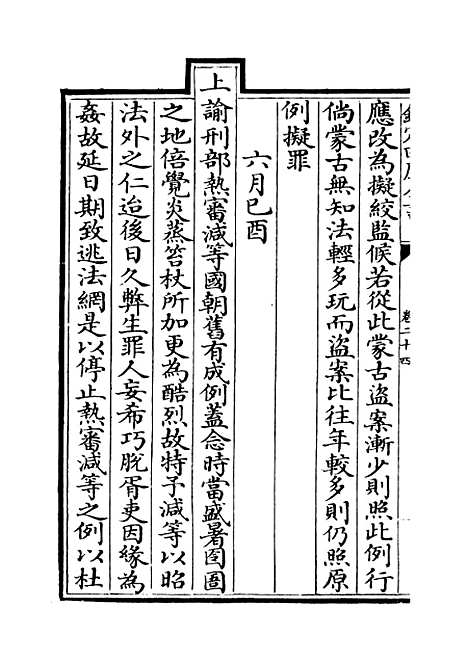 應改為擬絞監候若從此蒙古盜案漸少則照此例行
倘蒙古無知法輕多玩而盜案比往年較多則仍照原
例擬罪
六月己酉
上諭刑部熱審減等國朝舊有成例蓋念時當盛暑囹圄
之地倍覺炎蒸笞杖所加更為酷烈故特予減等以昭
法外之仁迨後日久弊生罪人妄希巧脫胥吏因緣為
姦故延日期致逃法網是以停止熱審減等之例以杜
卷二十四